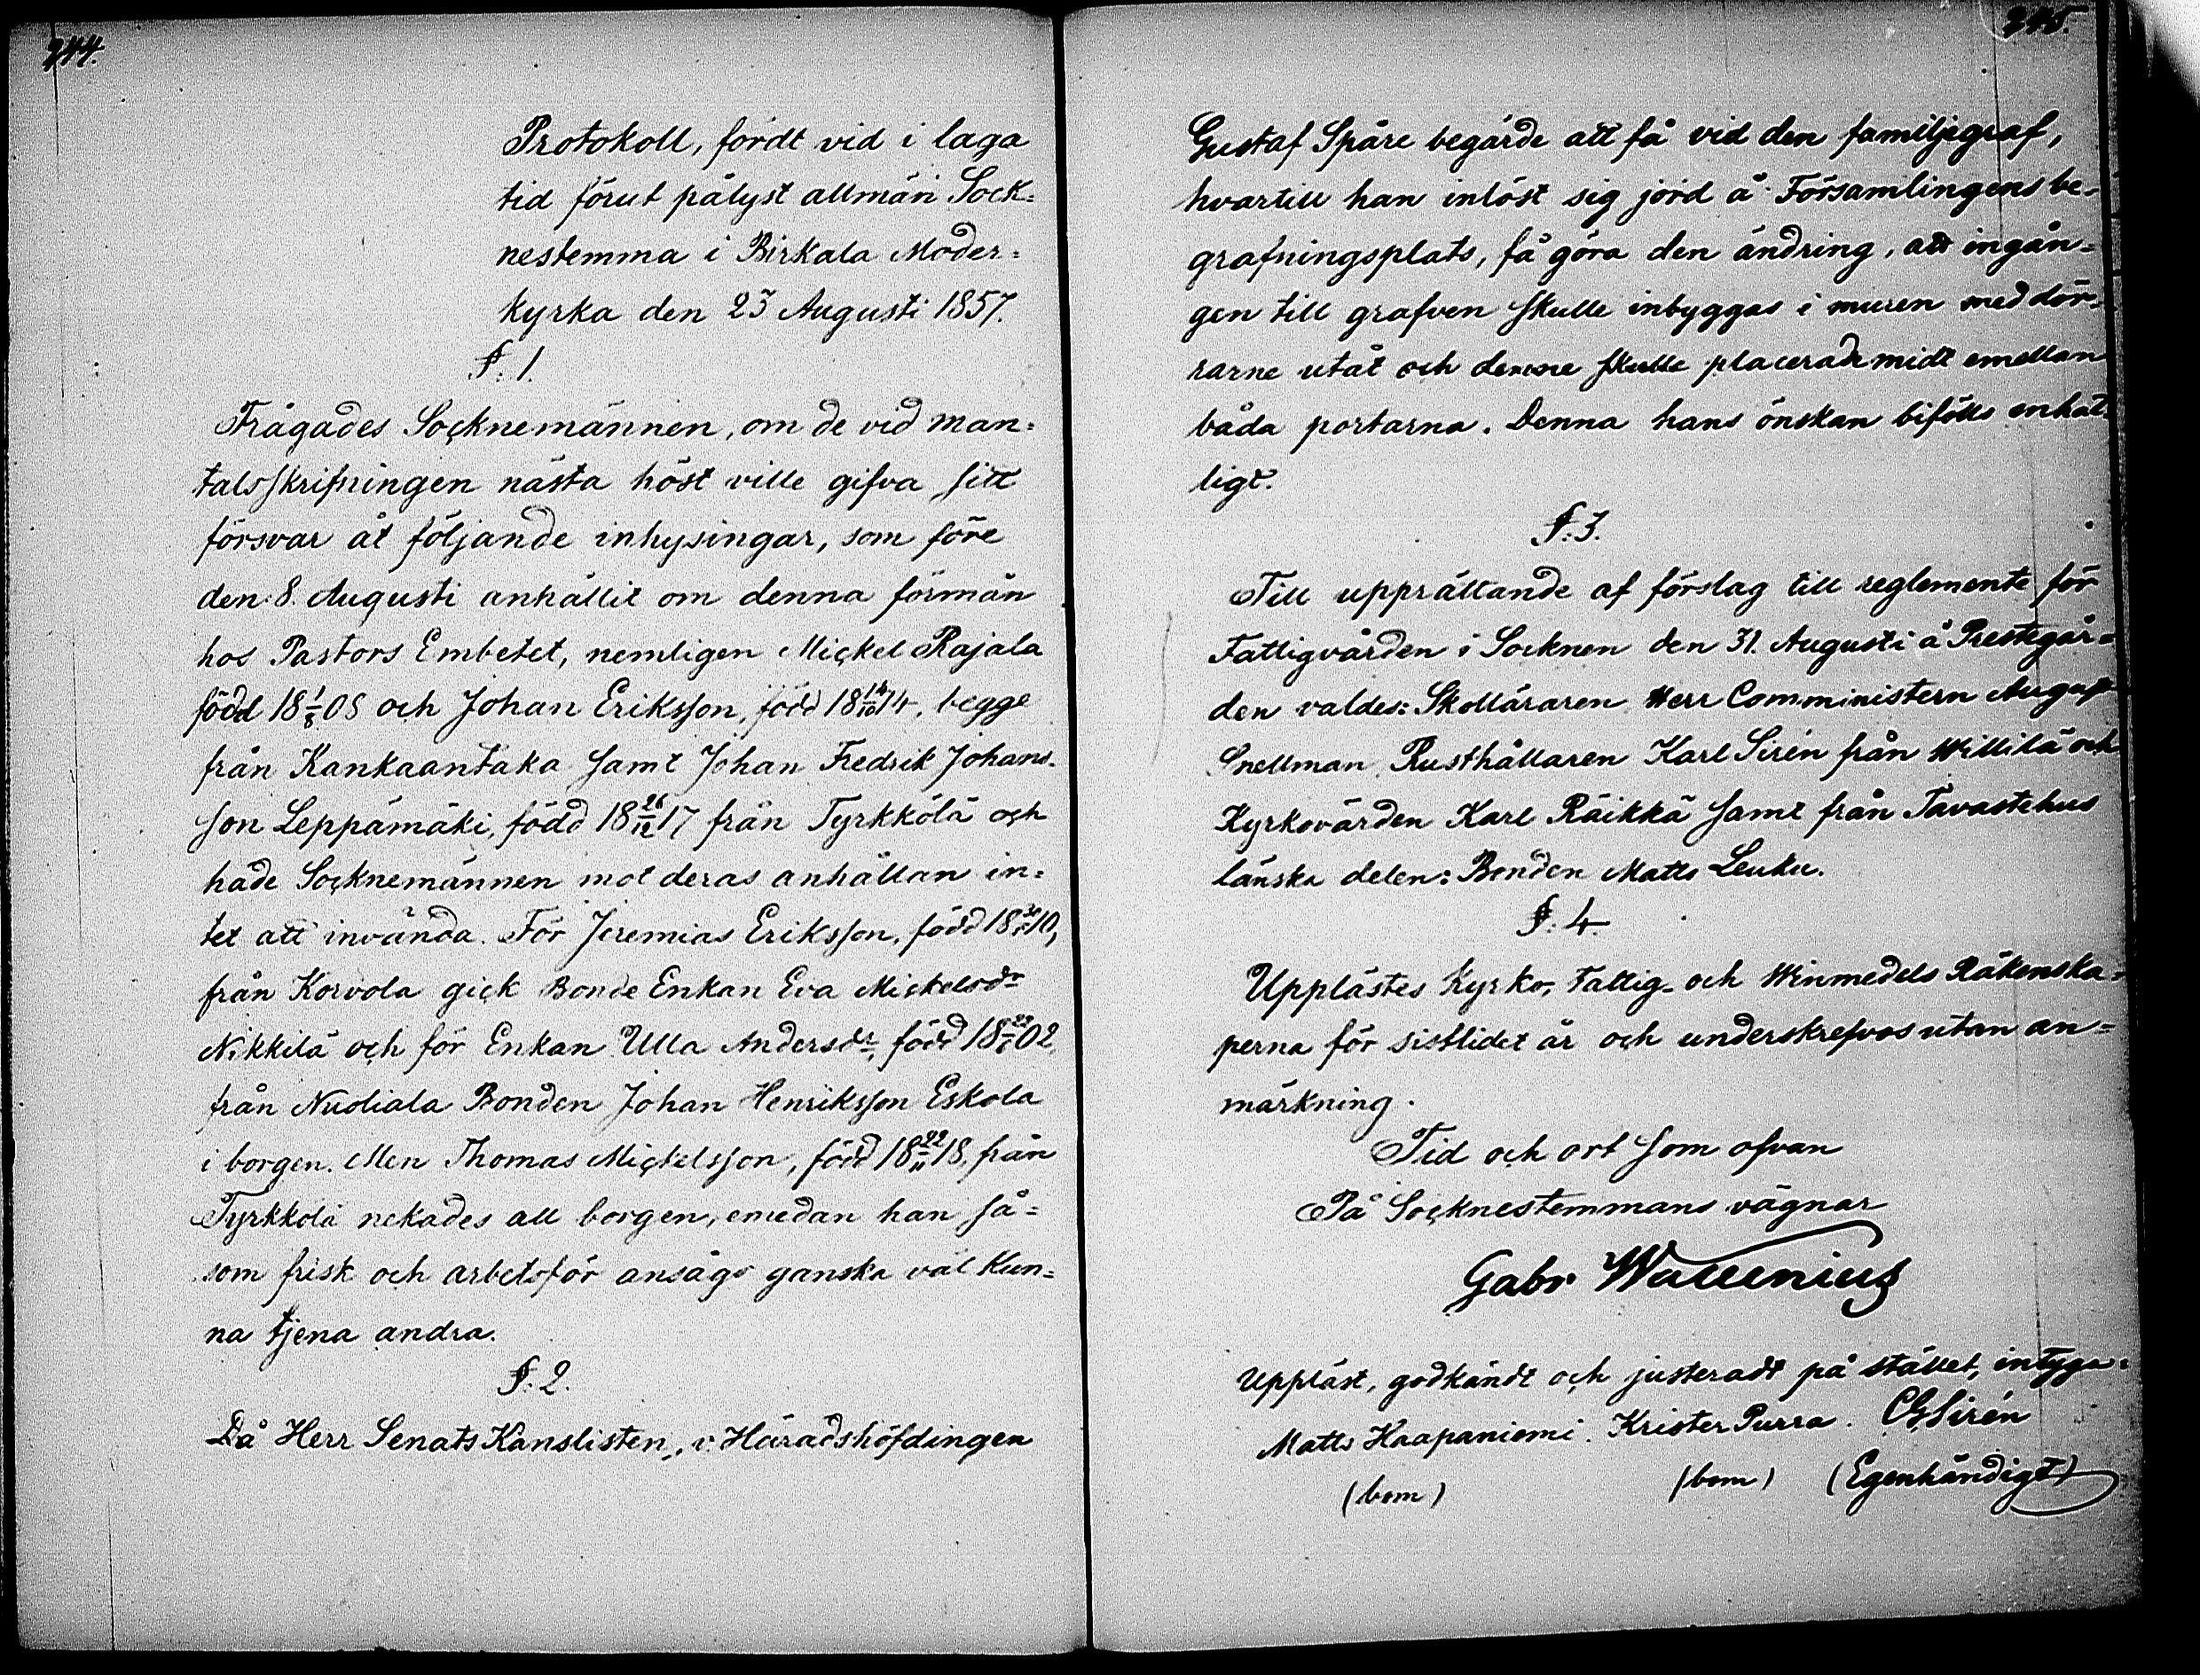 244.
Protokoll, fördt vid i laga
tid förut pålyst allmän Sock=
nestemma i Birkala Moder=
kyrka den 23 Augusti 1857.
§. 1.
Frågades Socknemännen, om de vid man=
talsskrifningen nästa höst ville gifva sitt
försvar åt följande inhysingar, som före
den 8. Augusti anhållit om denna förmån
hos Pastors Embetet, nemligen Mickel Rajala
född 18 1/8 08 och Johan Eriksson, född 18 14/10 14, begge
från Kankaantaka samt Johan Fredrik Johans-
son Leppämäki, född 18 26/12 17 från Tyrkkölä och
hade Socknemännen mot deras anhållan in=
tet att invända. För Jeremias Eriksson, född 18 10,
från Korvola gick Bonde Enkan Eva Mickelsdr
Nikkilä och för Enkan Ulla Andersdr, född 18 02,
från Nuoliala Bonden Johan Henriksson Eskola
i borgen. Men Thomas Mickelsson, född 18 22/11 18, från
Tyrkkölä nekades all borgen, emedan han så=
som frisk och arbetsför ansågs ganska väl kun=
na tjena andra.
§. 2.
Då Herr Senats Kanslisten, v. Häradshöfdingen
245.
Gustaf Spåre begärde att få vid den familjegraf,
hvartill han inlöst sig jord å Församlingens be-
grafningsplats, få göra den ändring, att ingån=
gen till grafven skulle inbyggas i muren med dör-
rarne utåt och denne skulle placerade midt emellan
båda portarna. Denna hans önskan bifölls enhäl
ligt.
§. 3.
Till upprättande af förslag till reglemente för
Fattigvården i Socknen den 31. Augusti å Prestegår=
den valdes: Skolläraren Herr Comministern August
Snellman, Rusthållaren Karl Sirén från Willilä och
Kyrkovärden Karl Räikkä samt från Tavastehus
länska delen: Bonden Matts Leuku.
§. 4.
Upplästes Kyrko-, Fattig- och Winmedels Räkenska=
perna för sistlidet år och underskrefvos utan an=
märkning.
Tid och ort som ofvan
På Socknestemmans vägnar
Gabr Wallenius
Uppläst, godkändt och justeradt på stället, intyga:
Matts Haapaniemi. Krister Purra. CGSirén
(bom) (bom) (Egenhändigt)